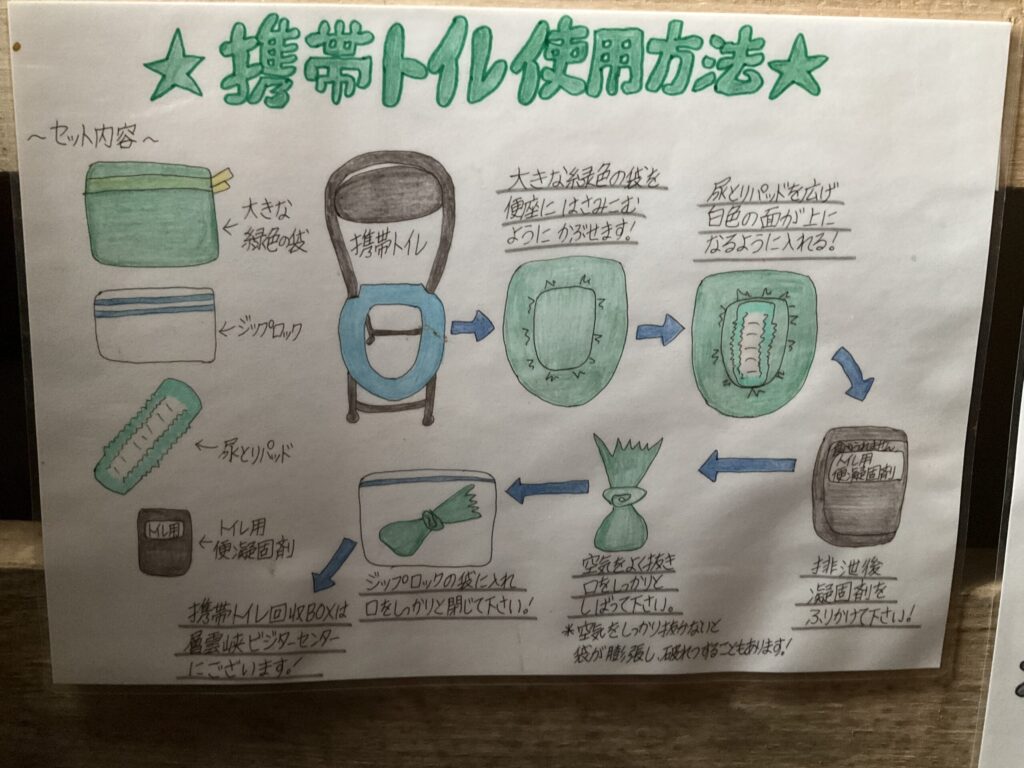 ★携帯トイレ使用方法★
～セット内容～
大きな
緑色の袋
ジップロック
尿とりパッド
トイレ用
トイレ用
便凝固剤
携帯トイレ
大きな緑色の袋を
便座にはさみこむ
ようにかぶせます!
尿とりパッドを広げ
白色の面が上に
なるように入れる!
食べられません
トイレ用
便凝固剤
排泄後
凝固剤を
ふりかけて下さい!
空気をよく抜き
口をしっかりと
しばって下さい。
*空気をしっかり抜かないと
袋が膨張し、破れつすることもあります!
ジップロックの袋に入れ
口をしっかりと閉じて下さい!
携帯トイレ回収BOXは
層雲峡ビジターセンター
にございます!